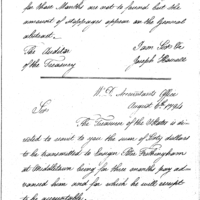 for three Months are not to forward but the
amount of stoppages appear on the General
abstract.
The Auditor I am Sir &c
of the Treasury Joseph Howell
W. D. Accountants Office
August 6th 1794
Sir
The Treasurer of the States is di-
rected to remit to you the sum of Sixty dollars
to be transmitted to Ensign Peter Frothingham
at Middletown being for three months pay ad-
vanced him and for which he will receipt
to be accountable.